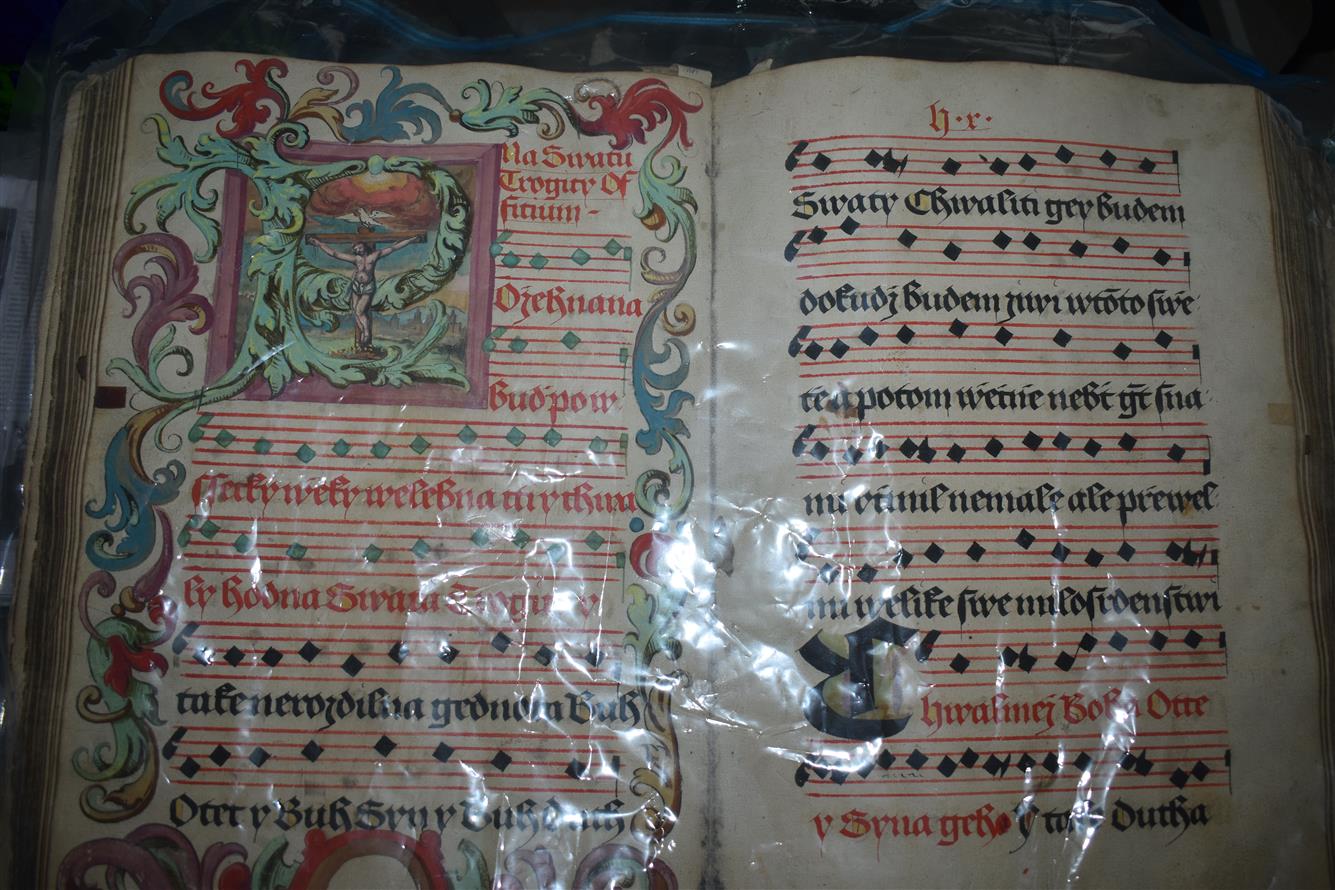 Na Swatu
Trogicy Of
ficium -
Ozehnana
bud pow
ssecky wěky welebna cti y chwa
ly hodna Swata Trogice y
take nerozdilna gednota Buh
Otec y Buh Syn y Buh duch
h·x·
Swaty Chwaliti gey budem
dokudz budem ziwi wtōto swe
tě a potom wěčnie nebt gt sna
mi včinil nemale ale přewel
mi welike swe milosrdenstwi
Chwalmež Boha Otce
y Syna geho y take Ducha